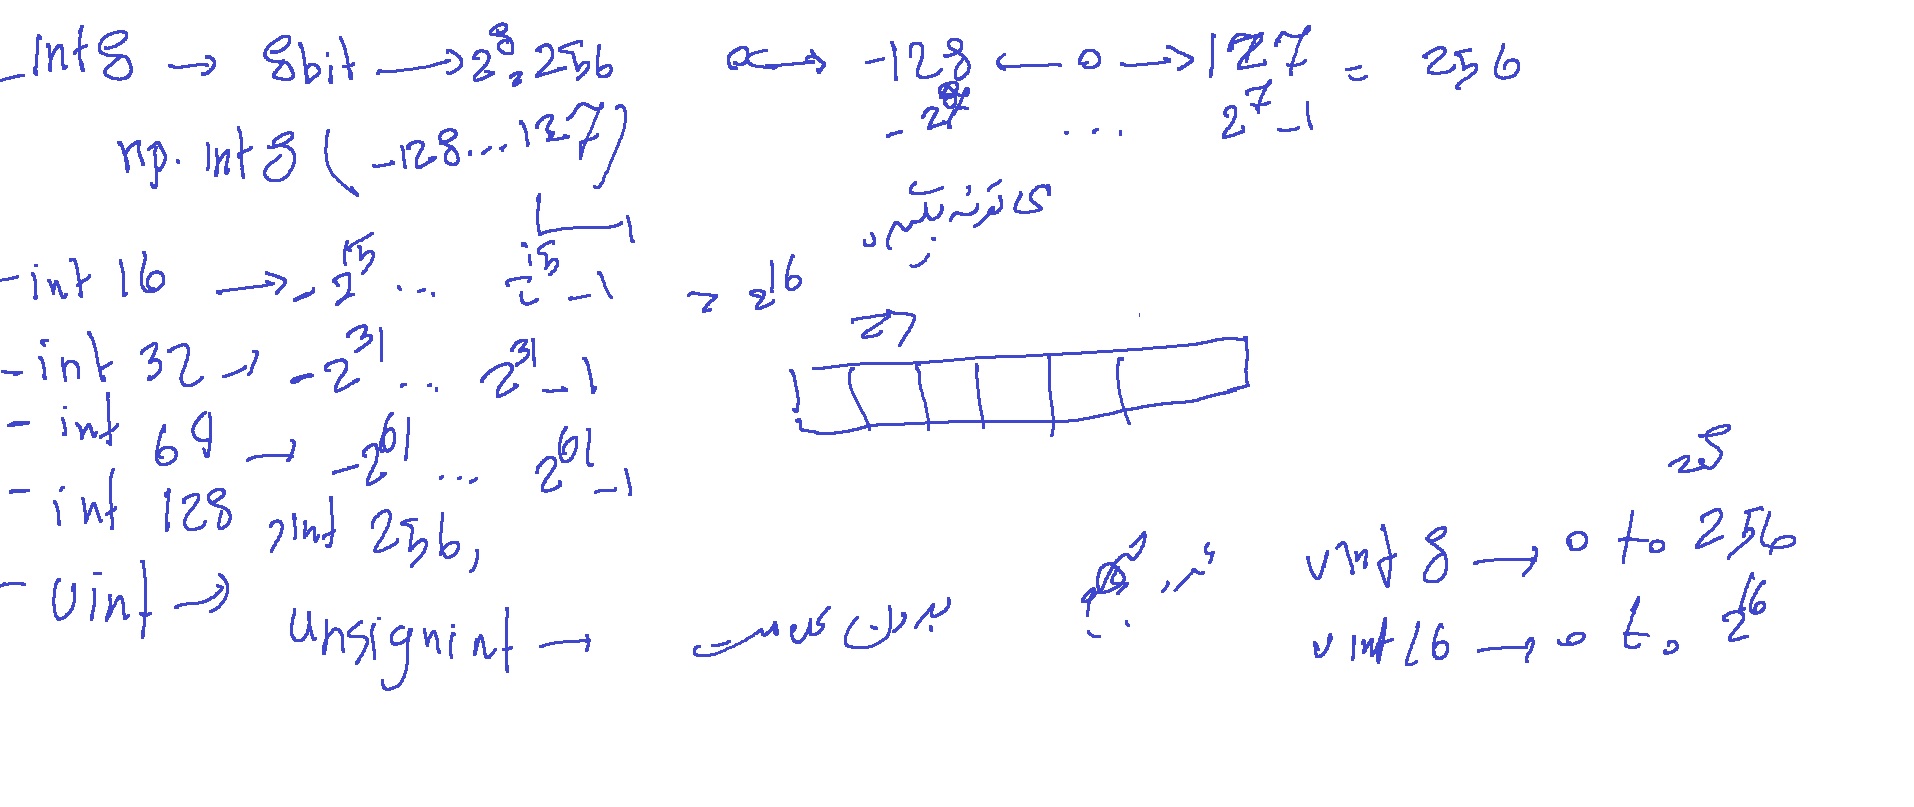 - int8 → 8bit → 2^8 = 256
← → -128 ← 0 → 127 = 256
-2^7 ... 2^7-1
np.int8 (-128...127)
- int 16 → -2^15 ... 2^15-1 = 2^16
- int 32 → -2^31 ... 2^31-1
- int 64 → -2^61 ... 2^61-1
- int 128, int 256,
- Uint → Unsignint → بدون
uint 8 → 0 to 256
2^8
uint 16 → 0 to 2^16